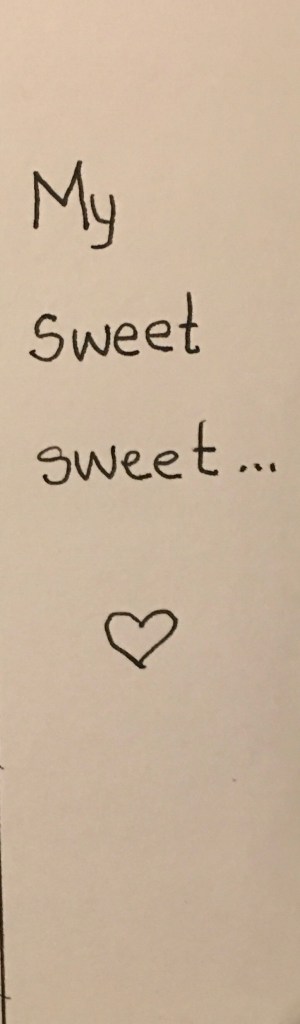 My
sweet
sweet...